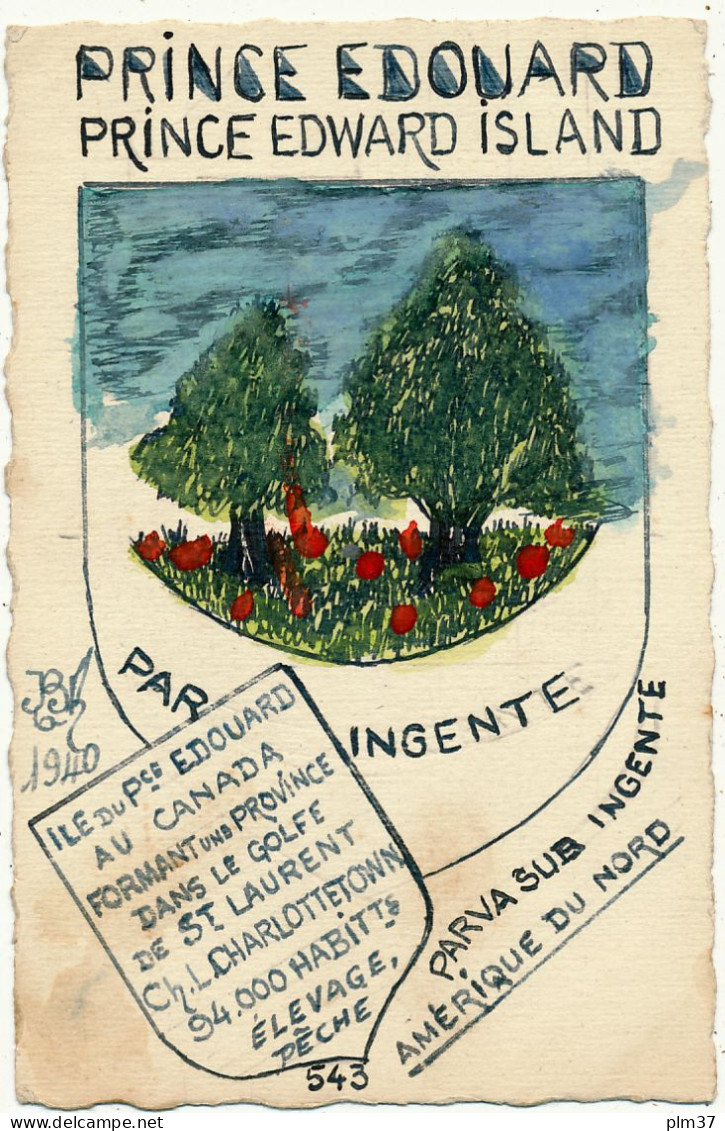 PRINCE EDOUARD
PRINCE EDWARD ISLAND
PAR INGENTE
1940
ILE DU PCE EDOUARD
AU CANADA
FORMANT UNE PROVINCE
DANS LE GOLFE
DE ST LAURENT
Ch.L.CHARLOTTETOWN
94.000 HABITTS
ÉLEVAGE,
PÊCHE
PARVA SUB INGENTE
AMÉRIQUE DU NORD
543
plm37